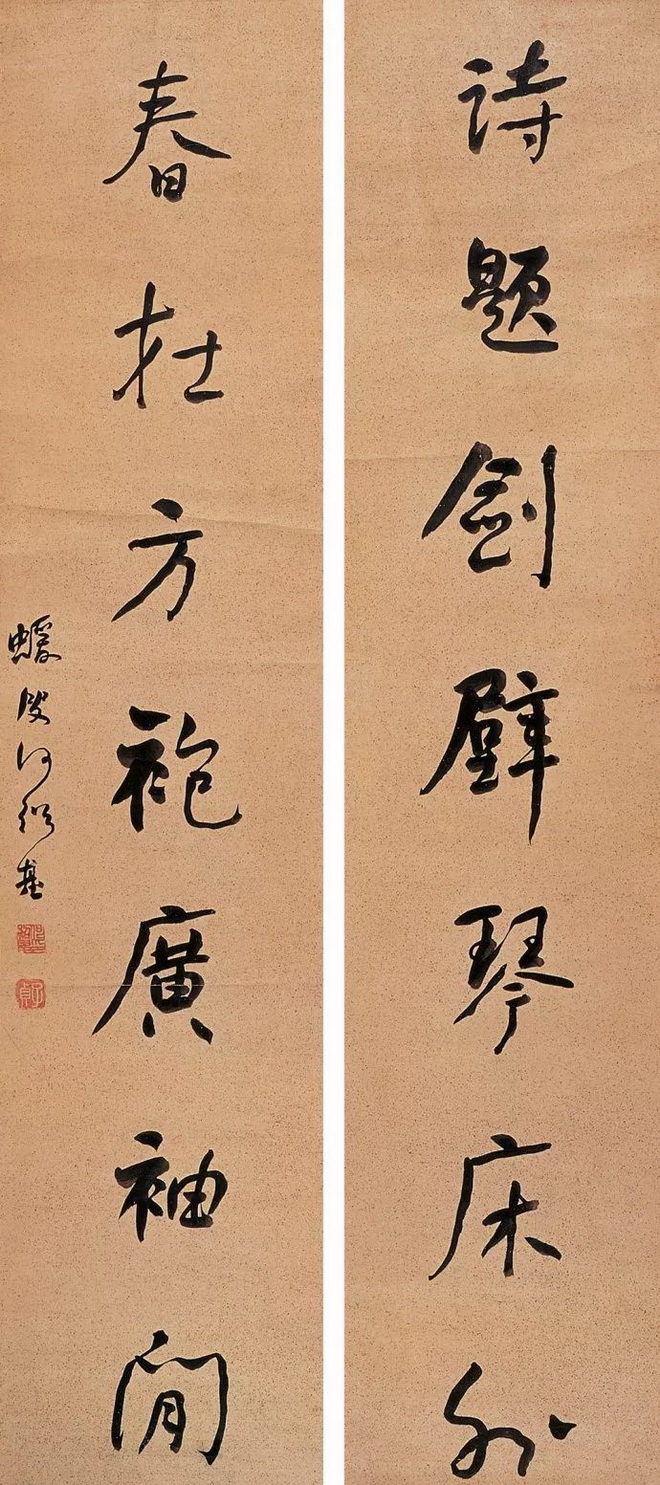 詩題劍壁琴床外
春在方袍廣袖間
蝯叟何紹基